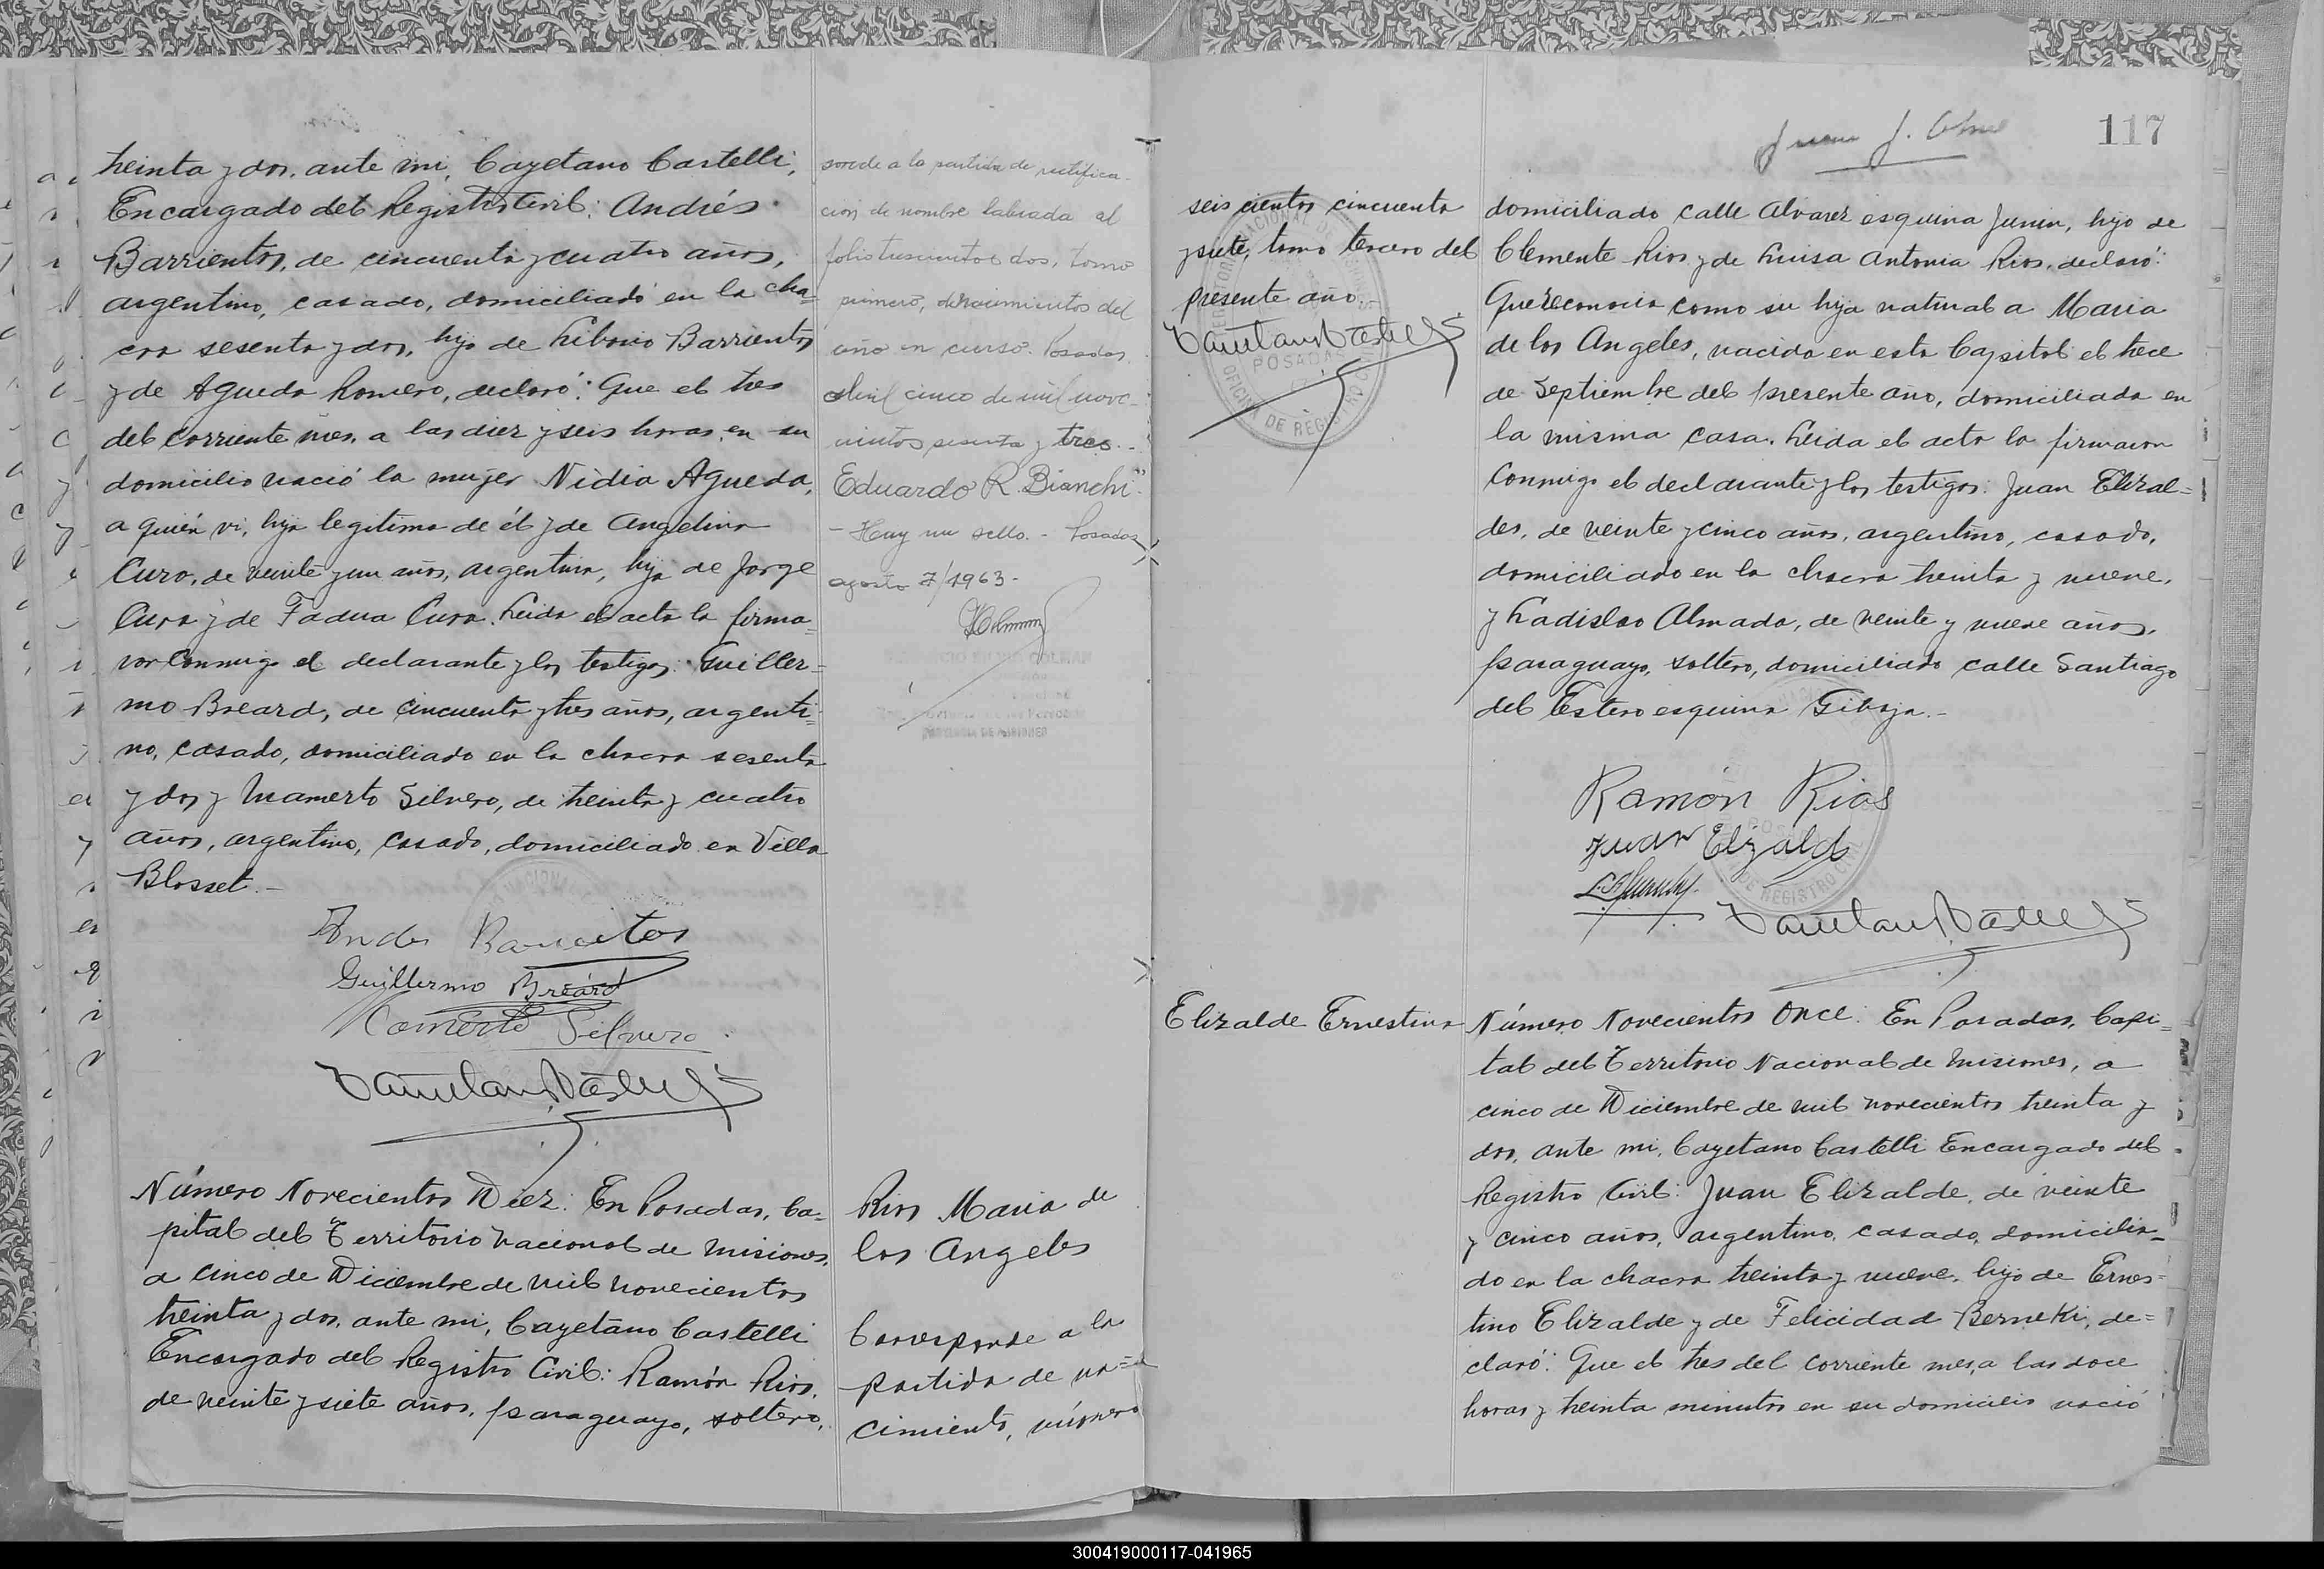 treinta y dos, ante mi, Cayetano Castelli,
Encargado del Registro Civil: Andrés
Barrientos, de cincuenta y cuatro años,
argentino, casado, domiciliado en la cha=
cra sesenta y dos, hijo de Liborio Barrientos
y de Agueda Romero, declaró: Que el tres
del corriente mes, a las diez y seis horas, en su
domicilio nació la mujer Nidia Agueda,
a quién vi, hija legitima de él y de Angelina
Cura, de veinte y un años, argentina, hija de Jorge
Cura y de Fadua Cura. Leida el acta la firma=
ron conmigo el declarante y los testigos: Guiller=
mo Breard, de cincuenta y tres años, argenti=
no, casado, domiciliado en la chacra sesenta
y dos y Mamerto Silvero, de treinta y cuatro
años, argentino, casado, domiciliado en Villa
Blosset.-
Barrientos
Guillermo Breard
Mamerto Silvero
Número Novecientos Diez: En Posadas, Ca=
pital del Territorio Nacional de Misiones,
a cinco de Diciembre de mil novecientos
treinta y dos, ante mi, Cayetano Castelli
Encargado del Registro Civil: Ramón Rios,
de veinte y siete años, paraguayo, soltero,
a la partida de rectifica-
ción de nombre labrada al
folio trescientos dos, tomo
primero, de nacimientos del
año en curso. Posadas,
abril cinco de mil nove-
cientos sesenta y tres.-
Eduardo R. Bianchi"
- Hay un sello. - Posadas
agosto 7/1963-
COLMAN
PROVINCIA DE MISIONES
Rios Maria de
los Angeles
Corresponde a la
partida de na=
cimiento, número
117
seiscientos cincuenta
y siete, tomo tercero del
presente año.-
POSADAS
OFICINA DE REGISTRO CIVIL
domiciliado calle Alvarez esquina Junin, hijo de
Clemente Rios y de Luisa Antonia Rios, declaró:
Que reconocia como su hija natural a Maria
de los Angeles, nacida en esta Capital el trece
de Septiembre del presente año, domiciliada en
la misma casa. Leida el acta la firmaron
conmigo el declarante y los testigos: Juan Elizal=
des, de veinte y cinco años, argentino, casado,
domiciliado en la chacra treinta y nueve,
y Ladislao Almada, de veinte y nueve años,
paraguayo, soltero, domiciliado calle Santiago
del Estero esquina Gibaja.-
Ramón Rios
Juan Elizalde
REGISTRO CIVIL
Elizalde Ernestina
Número Novecientos Once: En Posadas, Capi=
tal del Territorio Nacional de Misiones, a
cinco de Diciembre de mil novecientos treinta y
dos, ante mi, Cayetano Castelli Encargado del
Registro Civil: Juan Elizalde, de veinte
y cinco años, argentino, casado, domicilia=
do en la chacra treinta y nueve, hijo de Ernes=
tino Elizalde y de Felicidad Berneki, de=
claró: Que el tres del corriente mes, a las doce
horas y treinta minutos en su domicilio nació
300419000117-041965